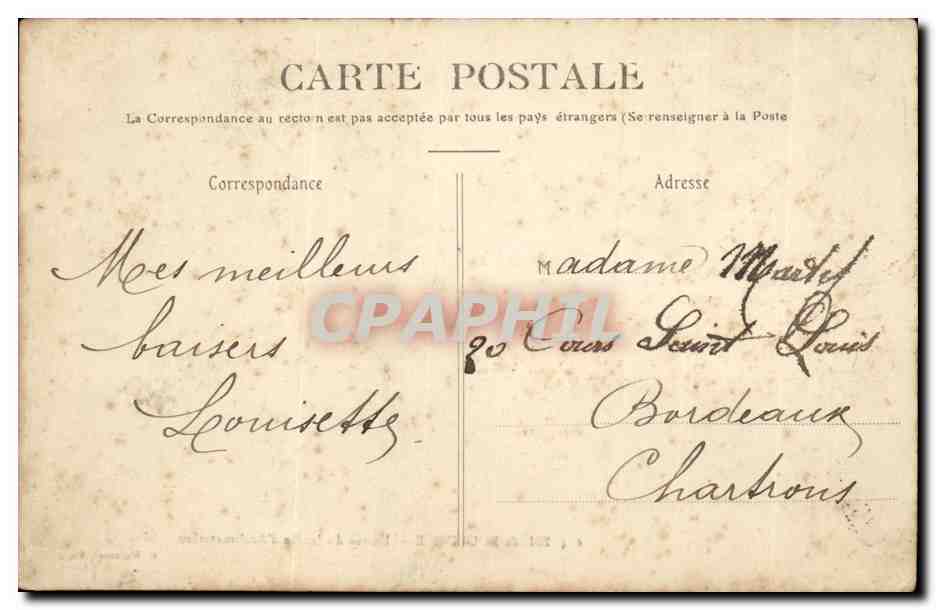 CARTE POSTALE
La Correspondance au recto n est pas acceptée par tous les pays étrangers (Se renseigner à la Poste
Correspondance
Adresse
Mes meilleurs
baisers
Louisette
Madame
20 Cours Saint Louis
Bordeaux
Chartrons
CPAPHIL